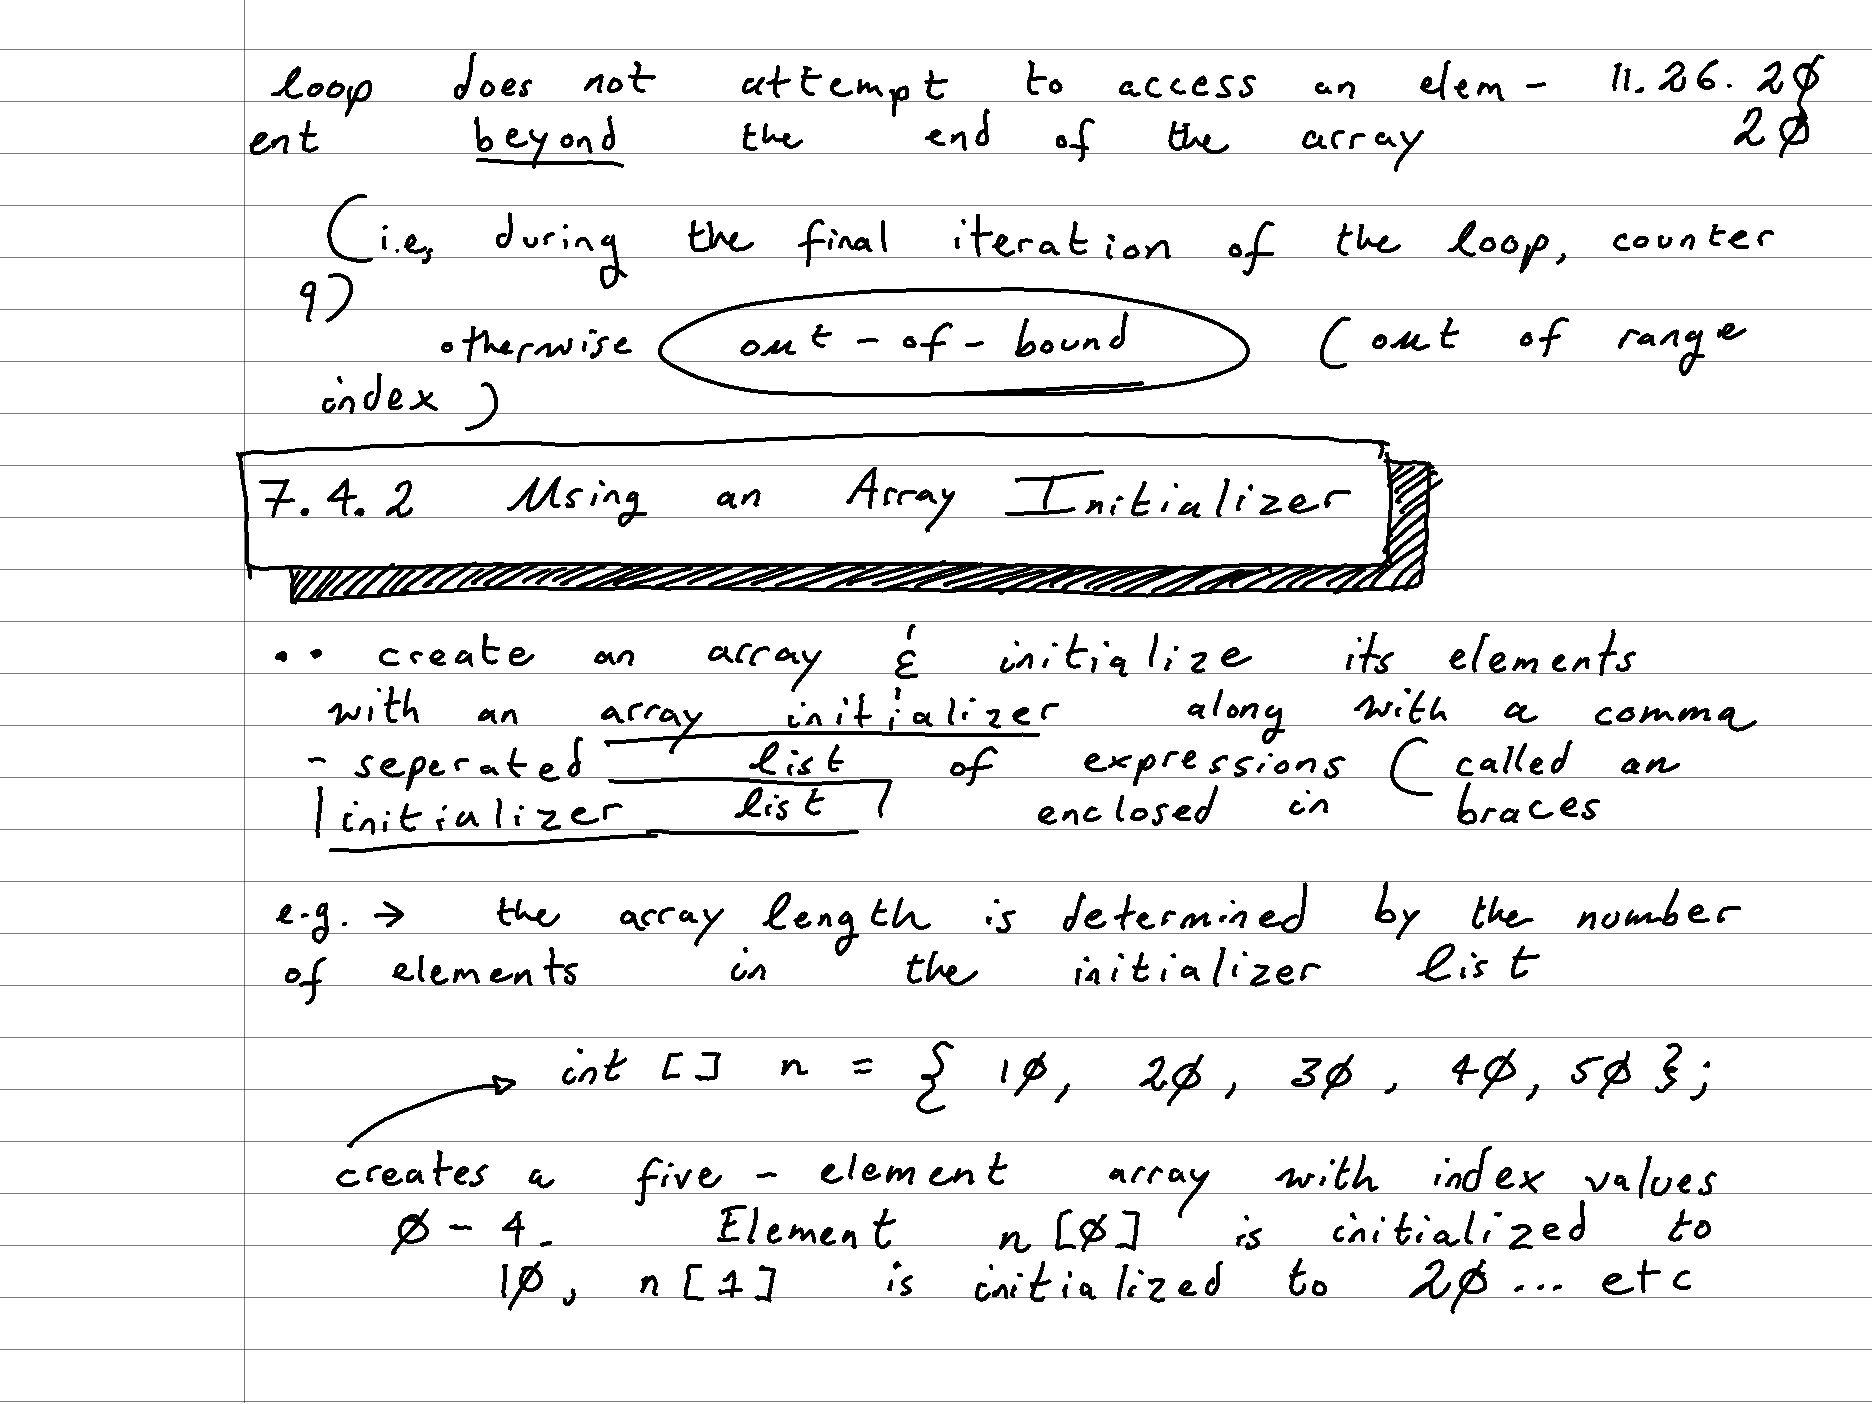 loop does not attempt to access an elem- 11.26.2ø
ent beyond the end of the array 2ø
(i.e, during the final iteration of the loop, counter
9)
otherwise out-of-bound (out of range
index)
7.4.2 Using an Array Initializer
.. create an array & initialize its elements
with an array initializer along with a comma
- seperated list of expressions (called an
initializer list enclosed in braces
e.g. → the array length is determined by the number
of elements in the initializer list
int [] n = { 1ø, 2ø, 3ø, 4ø, 5ø };
creates a five-element array with index values
ø-4. Element n[ø] is initialized to
1ø, n[1] is initialized to 2ø... etc